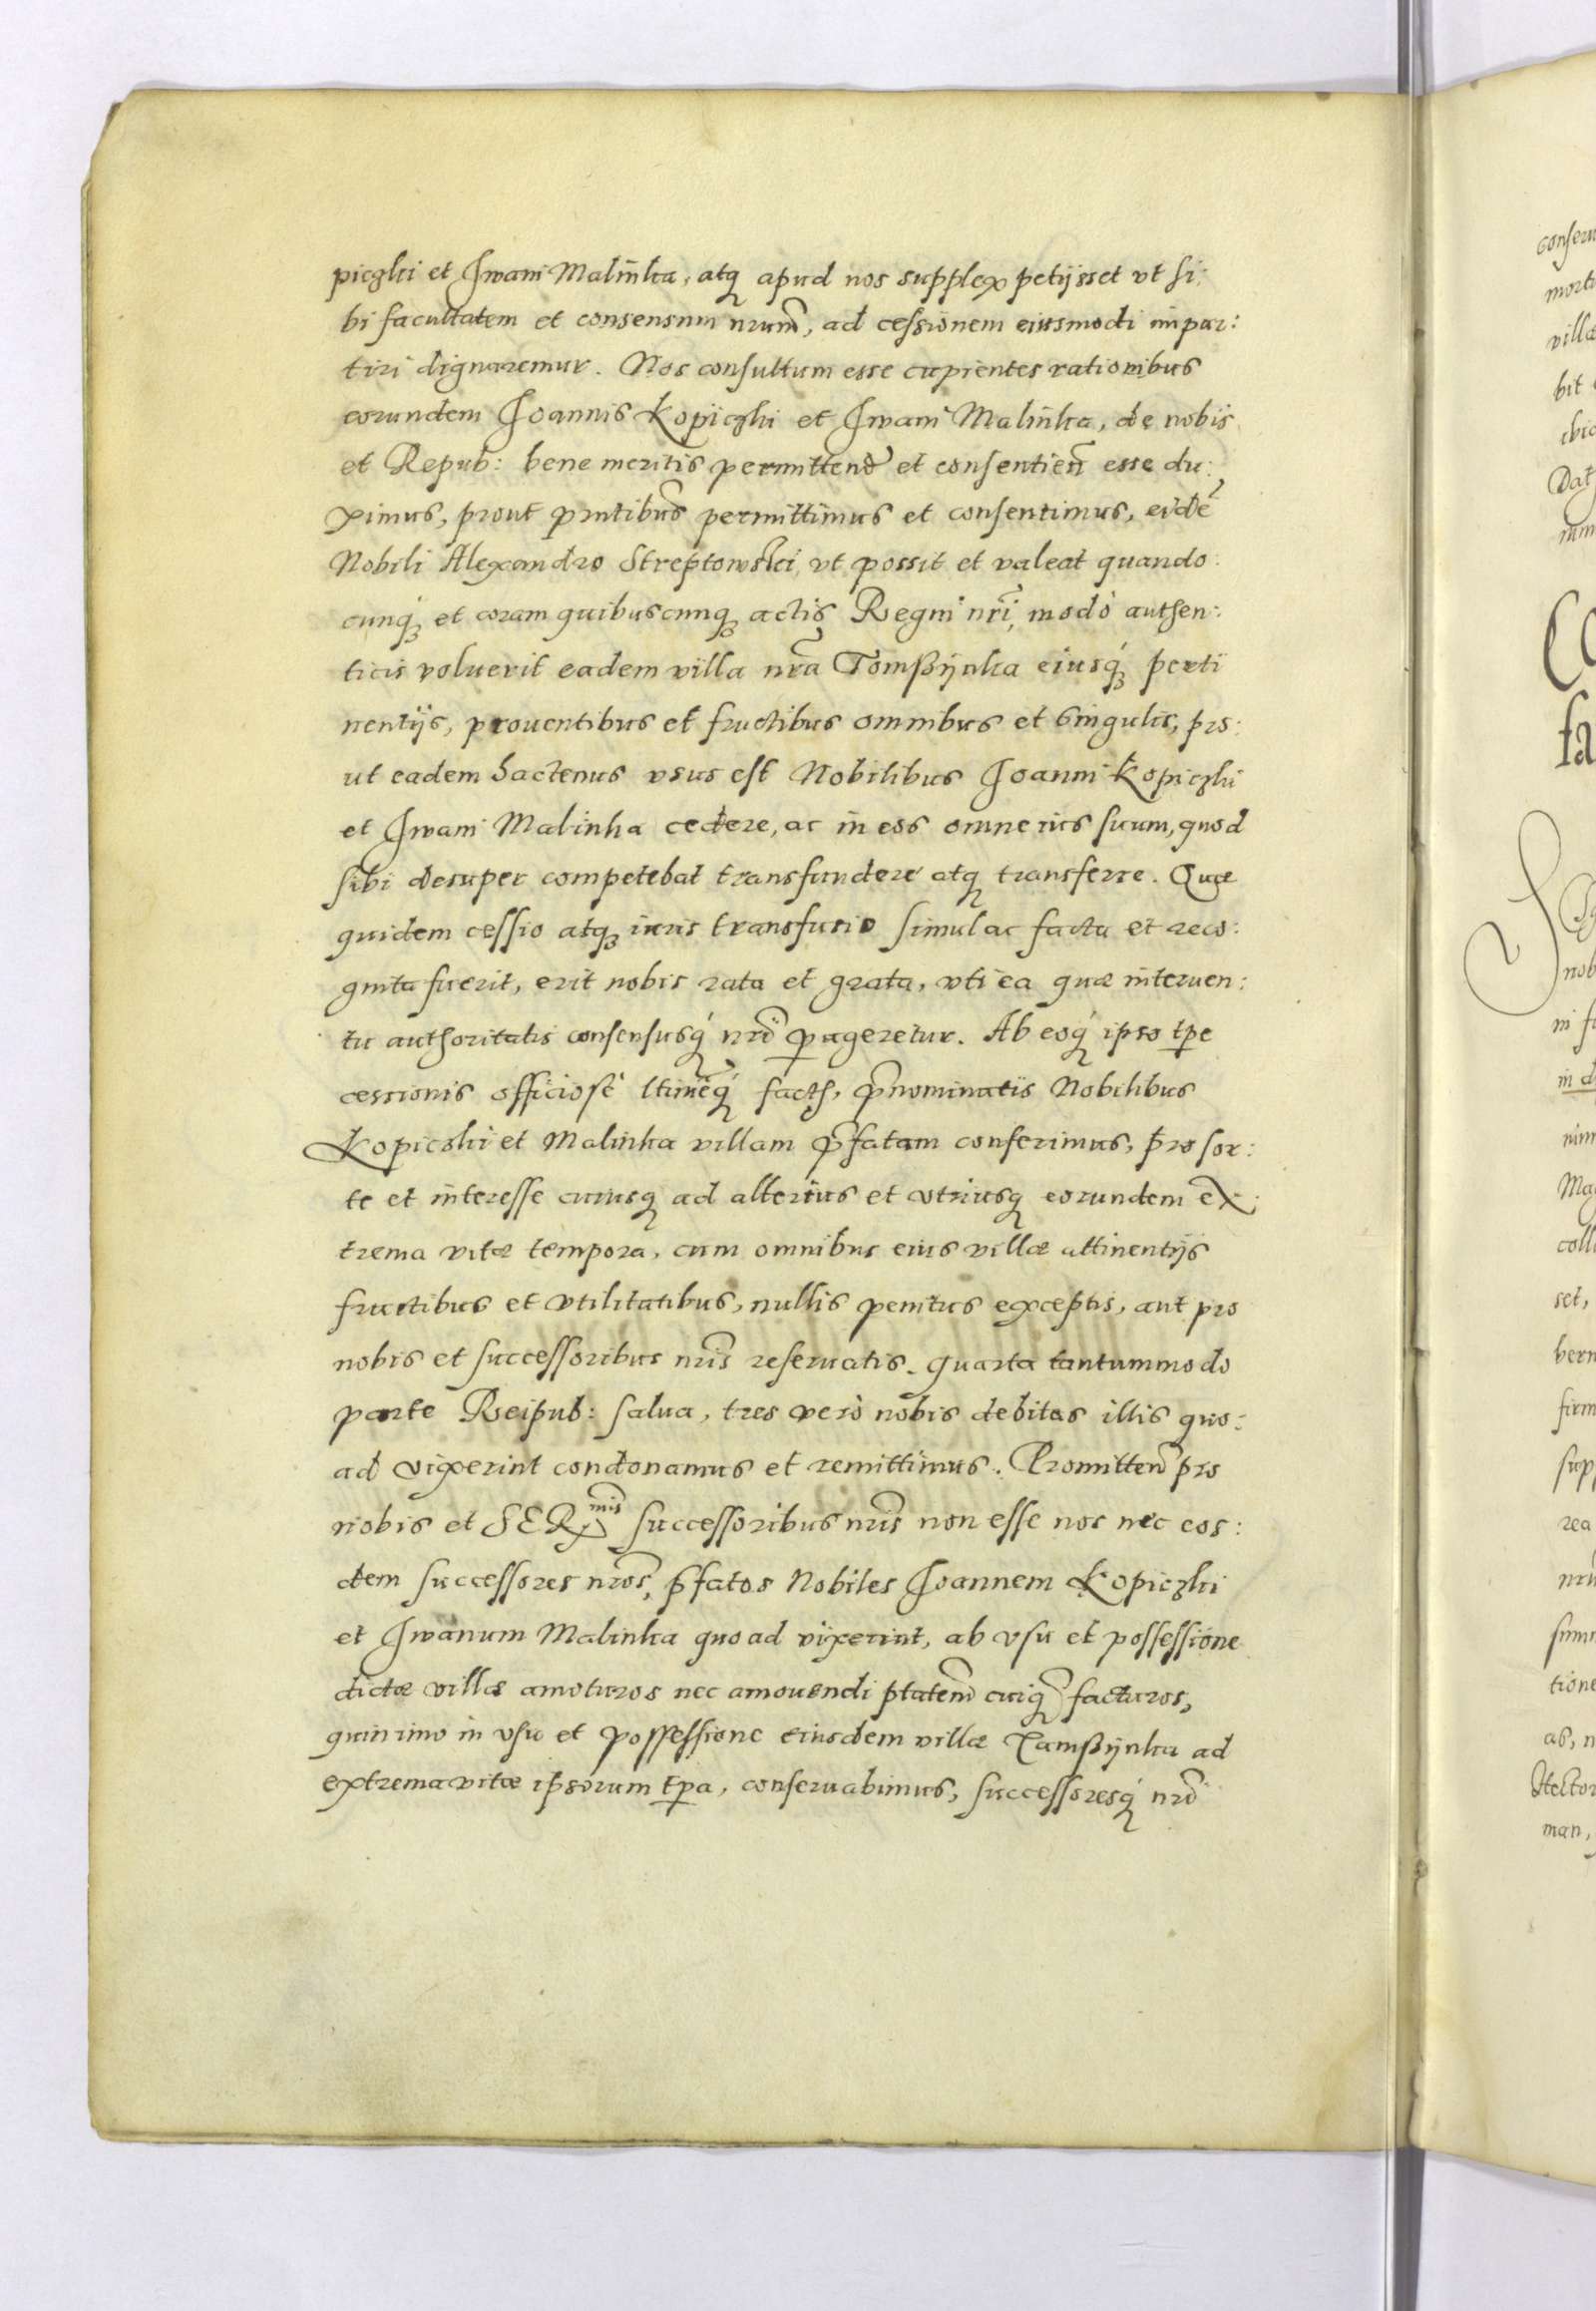 piczki et Jwani Malinka, atq₃ apud nos supplex petijsset vt si:
bi facultatem et consensum nrum̃, ad cessionem eiusmodi impar:
tiri dignaremur. Nos consultum esse cupientes rationibus
eorundem Joannis Kopiczki et Jwani Malinka, de nobis
et Repub: bene meritis permittend et consentień esse du:
ximus, prout pñtibus permittimus et consentimus, eidẽ
Nobili Alexandro Streptowski, vt possit et valeat quando:
cunq₃ et coram quibuscunq₃ actis Regni nr̃i, modò authen:
ticis voluerit eadem villa nr̃a Tomßijnka eiusq₃ perti
nentijs, prouentibus et fructibus omnibus et singulis, pro:
ut eadem hactenus vsus est Nobilibus Joanni Kopiczki
et Jwani Malinka cedere, ac in eos omne ius suum, quod
sibi desuper competebat transfundere atq₃ transferre. Quæ
quidem cessio atq₃ iuris transfusio simul ac facta et reco:
gnita fuerit, erit nobis rata et grata, vti ea quæ interuen:
tu authoritatis consensusq₃ nr̃i pageretur. Ab eoq₃ ipso tpe
cessionis officiosè ltimẽq₃ factę, p̃nominatis Nobilibus
Kopiczki et Malinka villam p̃fatam conferimus, pro sor:
te et interesse cuiusq₃ ad alterius et vtriusq₃ eorundem ex:
trema vitæ tempora, cum omnibus eius villæ attinentijs
fructibus et vtilitatibus, nullis penitus exceptis, aut pro
nobis et successoribus nr̃is reseruatis. quarta tantummodo
parte Reipub: salua, tres verò nobis debitas illis quo:
ad vixerint condonamus et remittimus. Promitteñ pro
nobis et SER^mis successoribus nr̃is non esse nos nec eos:
dem successores nr̃os, p̃fatos Nobiles Joannem Kopiczki
et Jwanum Malinka quoad vixerint, ab vsu et possessione
dictæ villæ amoturos nec amouendi ptatem̃ cuiq₃ facturos,
quin imo in vsu et possessione eiusdem villæ Tamßijnka ad
extrema vitæ ipsorum tpa, conseruabimus, successoresq₃ nr̃i